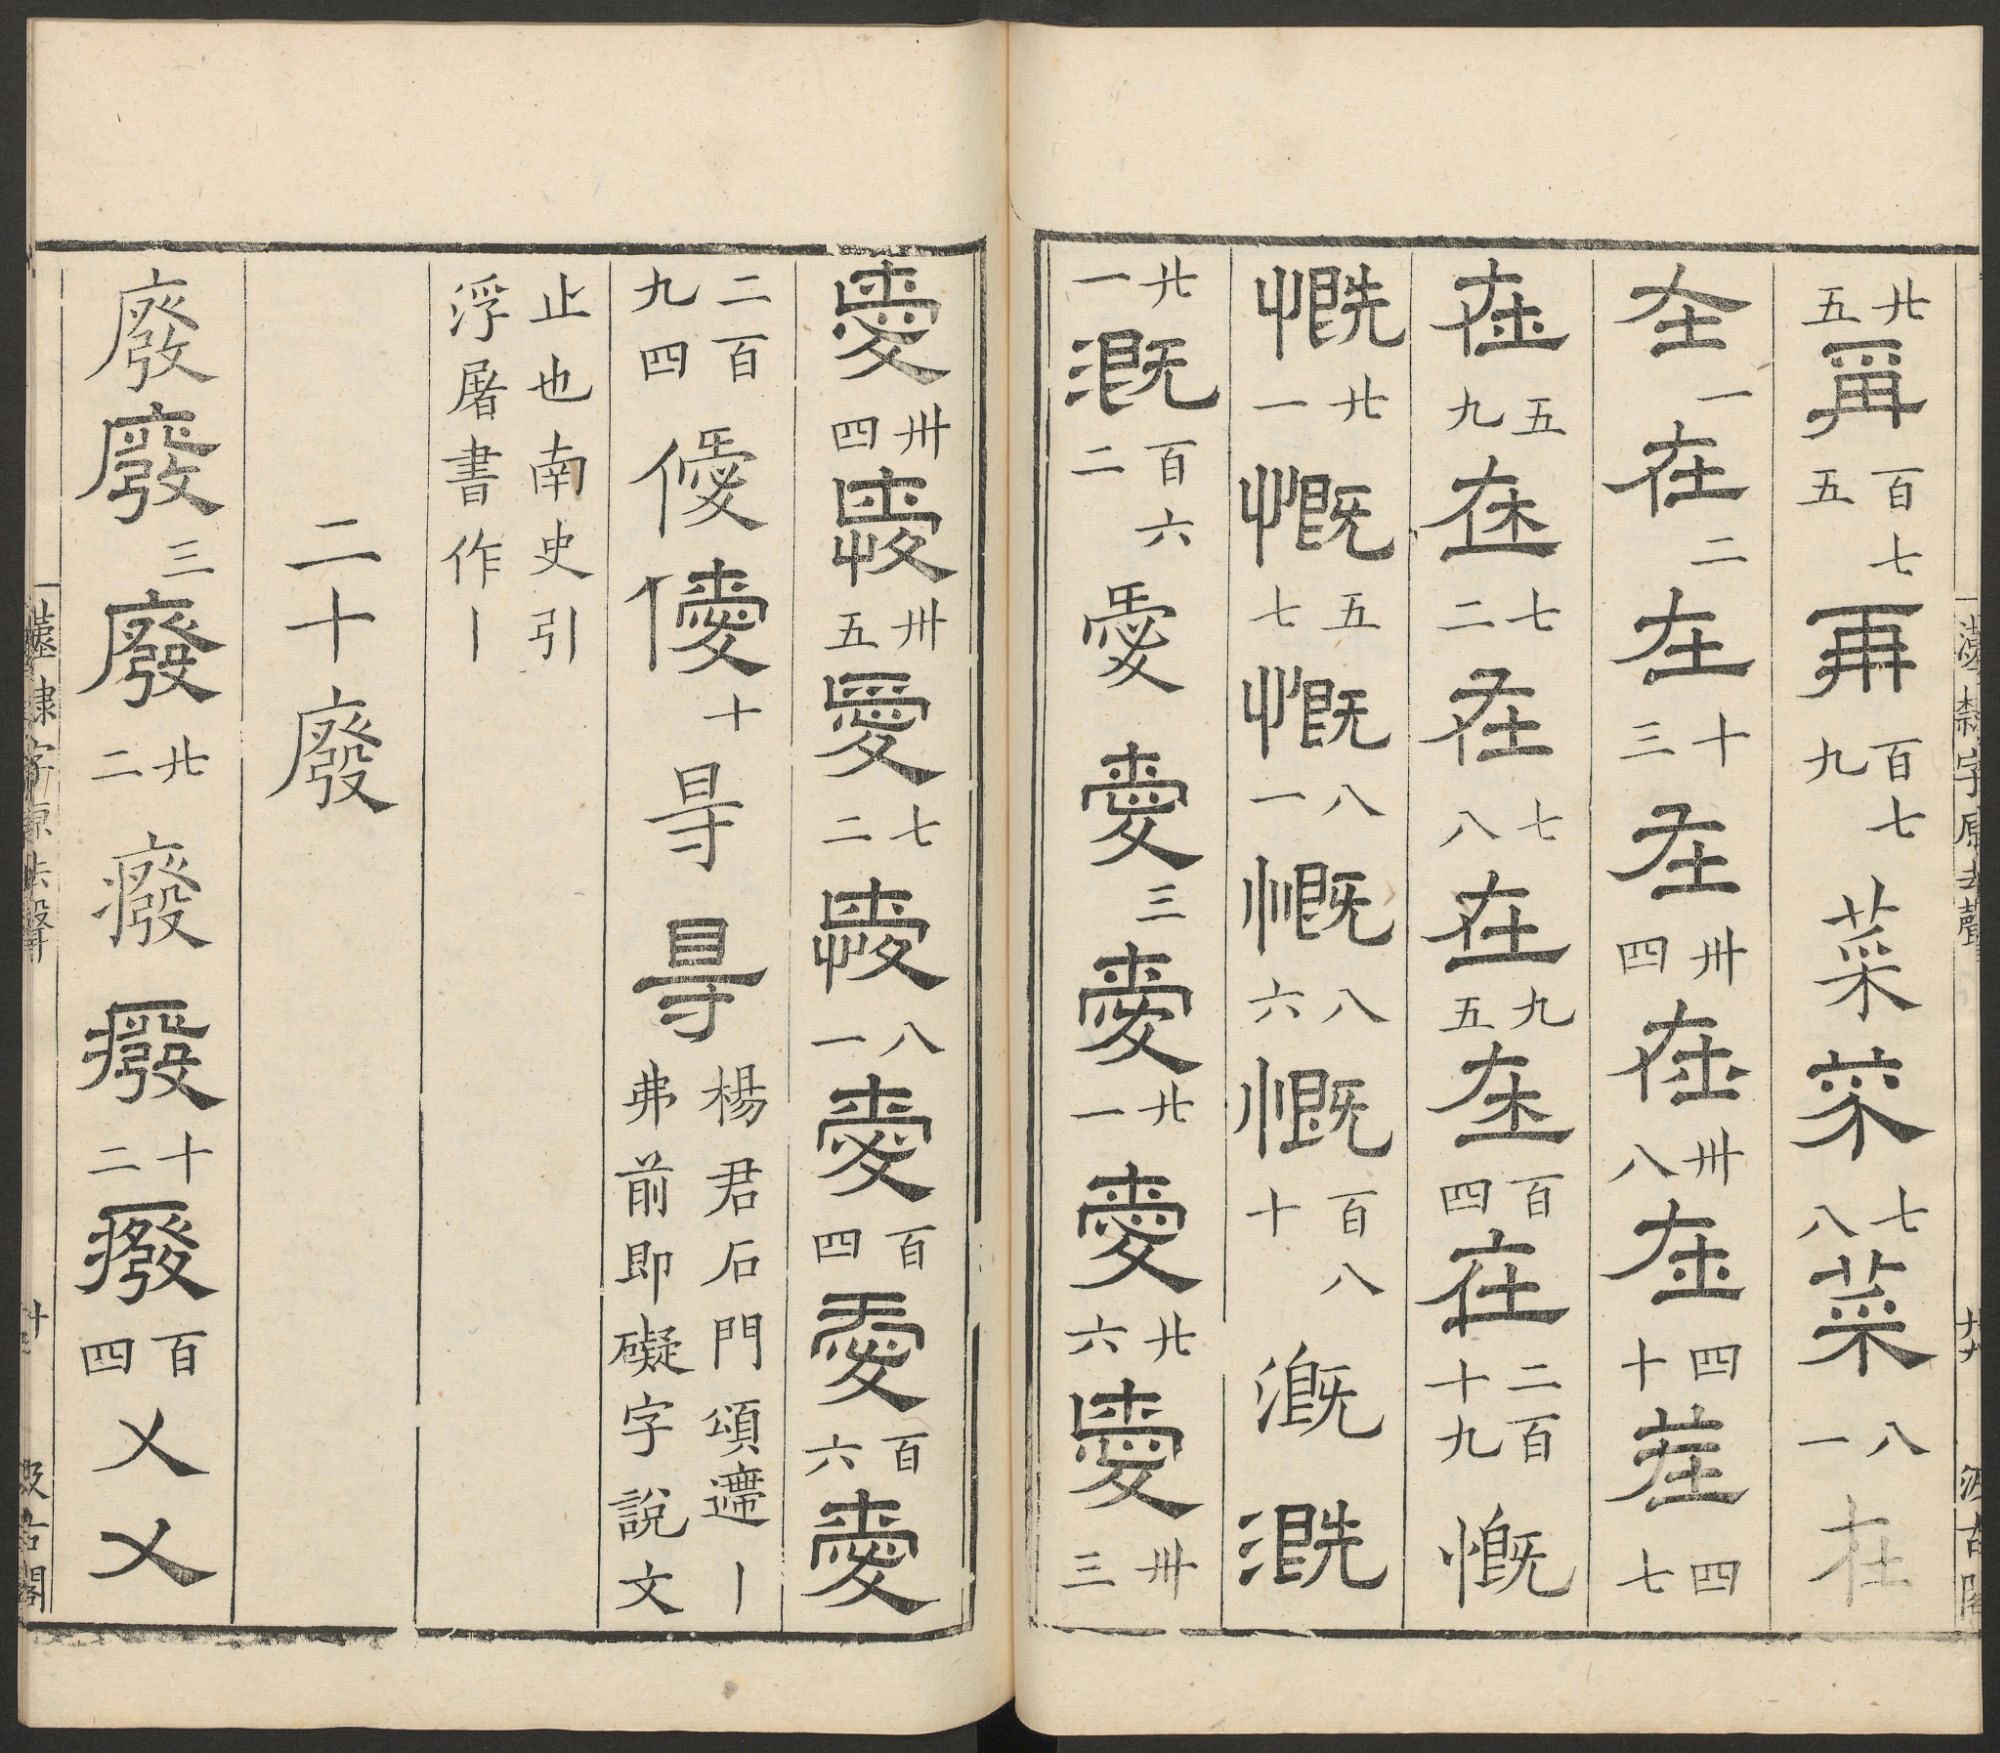 廿五再百七五再百七九菜菜七八菜八一在
在一在二在十三在卅四在卅八在四十在四七
在五九在七二在七八在九五在百四在二百十九慨
慨廿一慨五七慨八一慨八六慨百八十溉溉
廿一溉百六二愛愛三愛廿一愛廿六愛卅三
愛卅四愛卅五愛七二愛八一愛百四愛百六愛
二百九四僾僾十㝵㝵楊君石門頌遰丨
弗前即礙字說文
止也南史引
浮屠書作丨
二十廢
廢廢三廢廿二癈癈十二癈百四乂乂
漢隸字原去聲
汲古閣